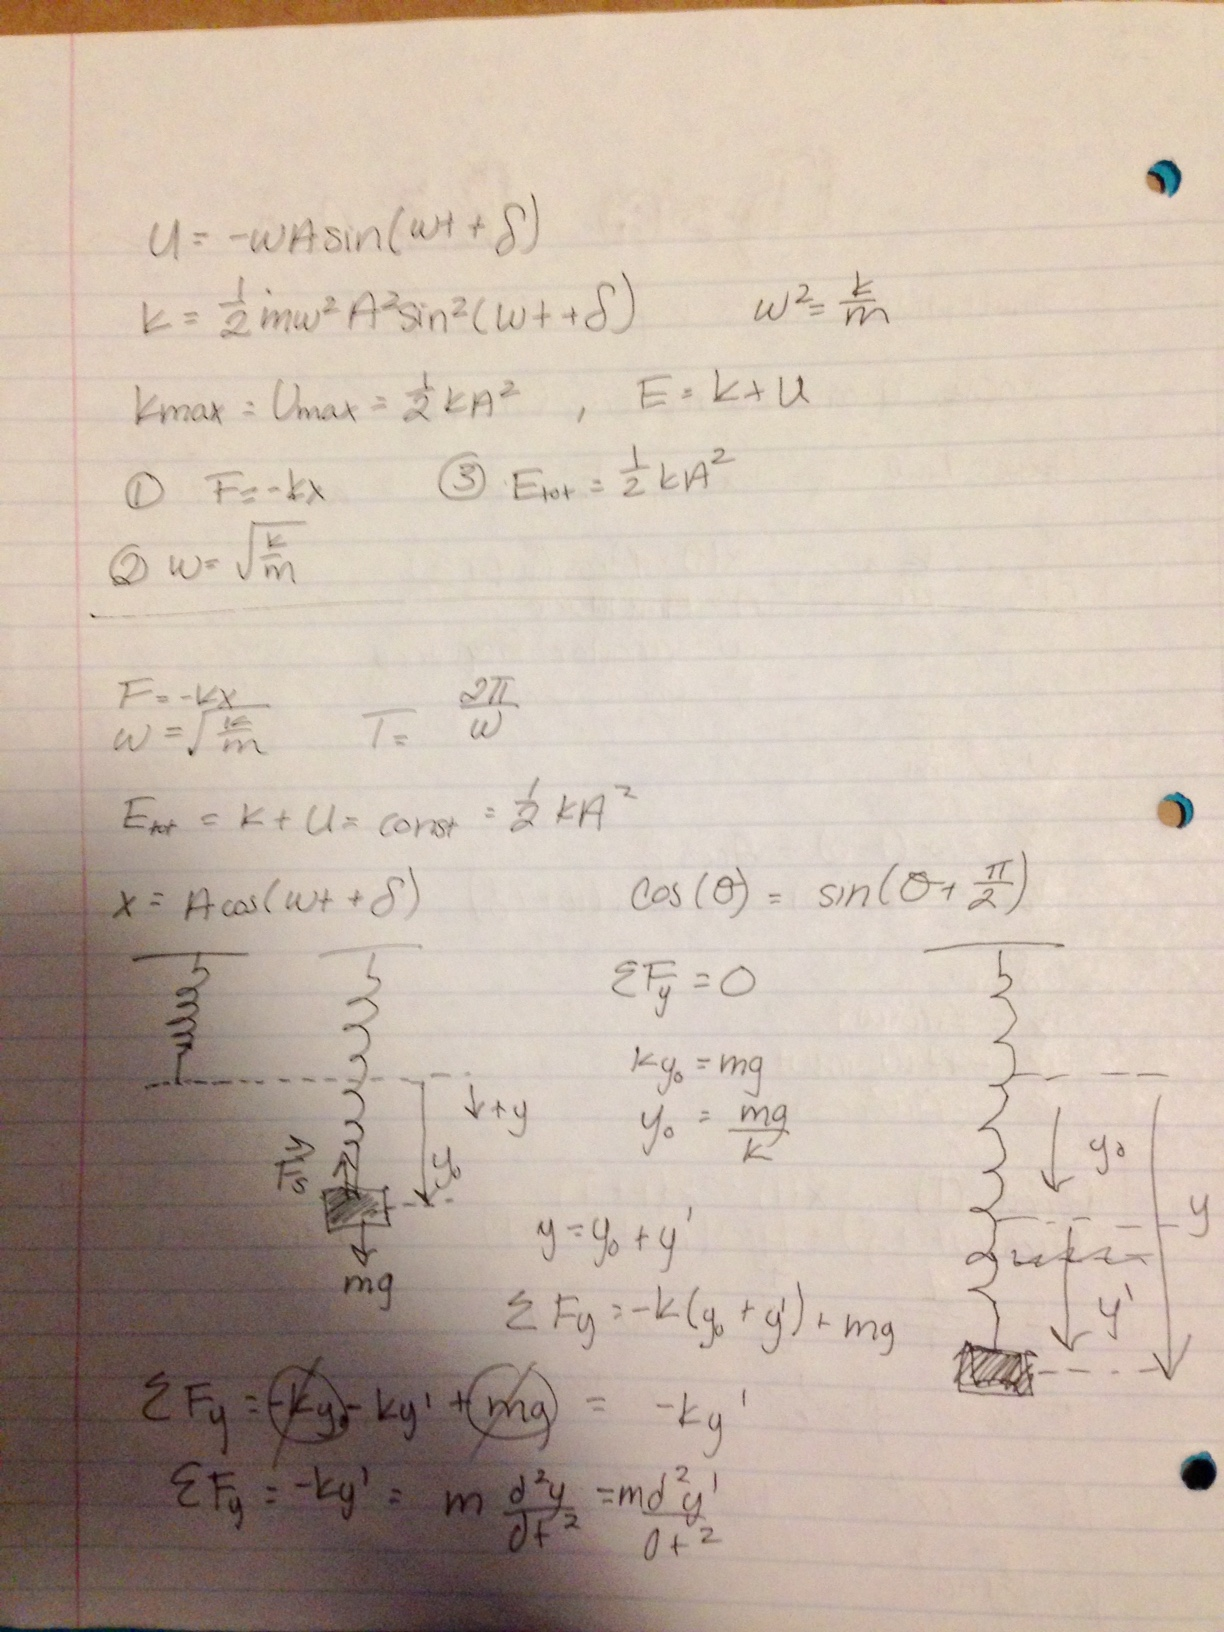 U = -wAsin(wt + δ)
k = 1/2 mw² A² sin²(wt + δ)    w² = k/m
kmax = Umax = 1/2 kA² , E = k + U
① F = -kx    ③ Etot = 1/2 kA²
② w = √(k/m)
F = -kx
w = √(k/m)    T = 2π/w
Etot = k + U = const = 1/2 kA²
x = Acos(wt + δ)    cos(θ) = sin(θ + π/2)
ΣFy = 0
ky₀ = mg
↓+y    y₀ = mg/k
y₀
Fs
mg
y₀
y
y'
y = y₀ + y'
ΣFy = -k(y₀ + y') + mg
ΣFy = -ky₀ - ky' + mg = -ky'
ΣFy = -ky' = m d²y/dt² = md²y'/dt²